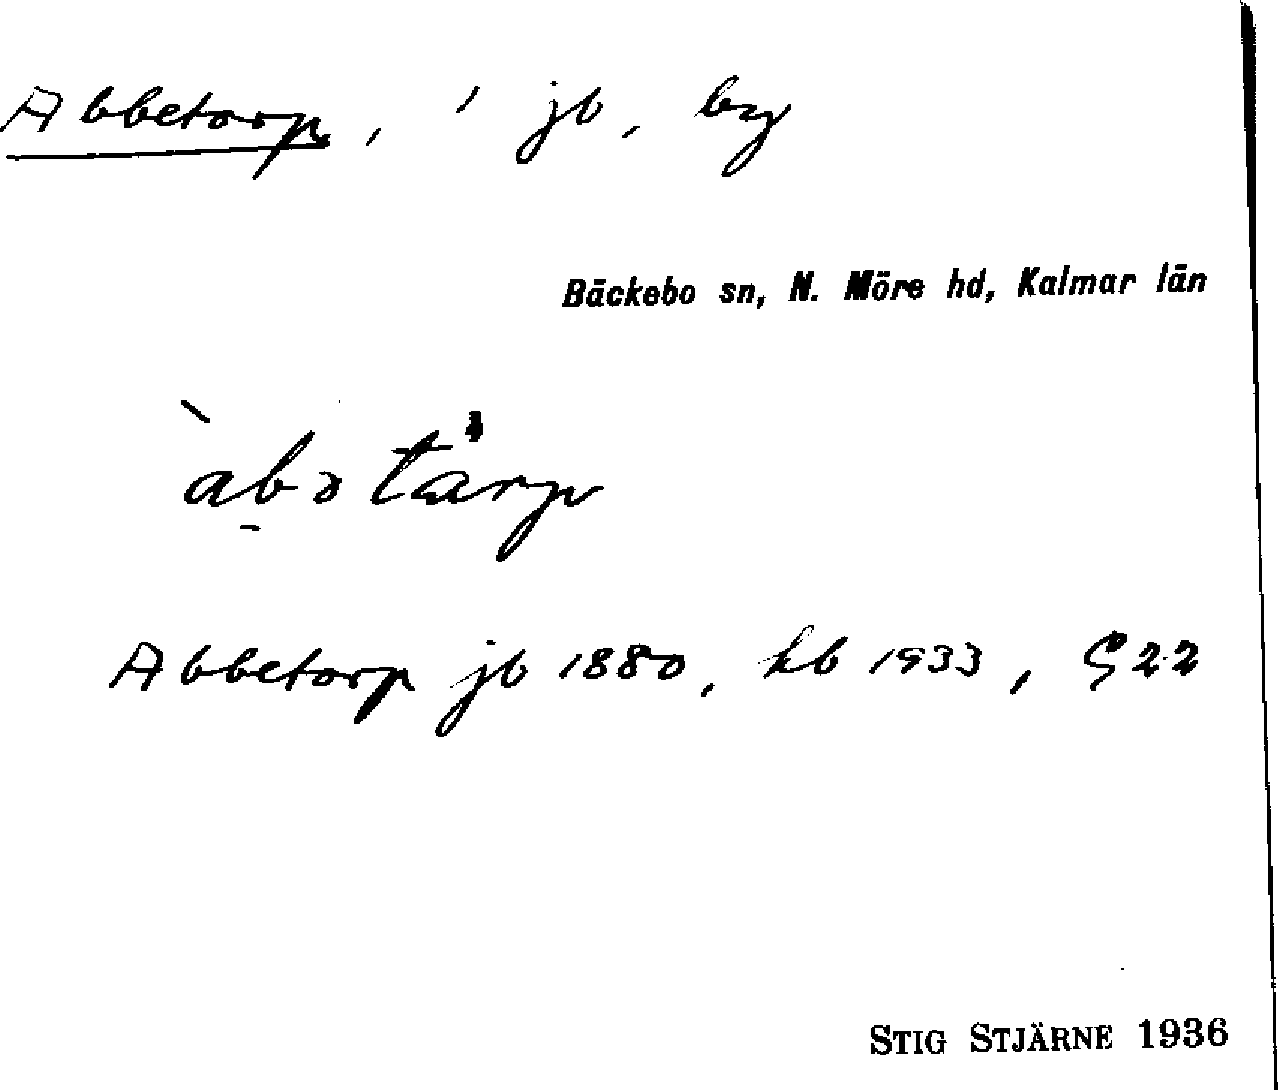 Abbetorp, ' jb, by
Bäckebo sn, N. Möre hd, Kalmar län
àbətårp
Abbetorp jb 1880, hb 1933, G22
STIG STJÄRNE 1936